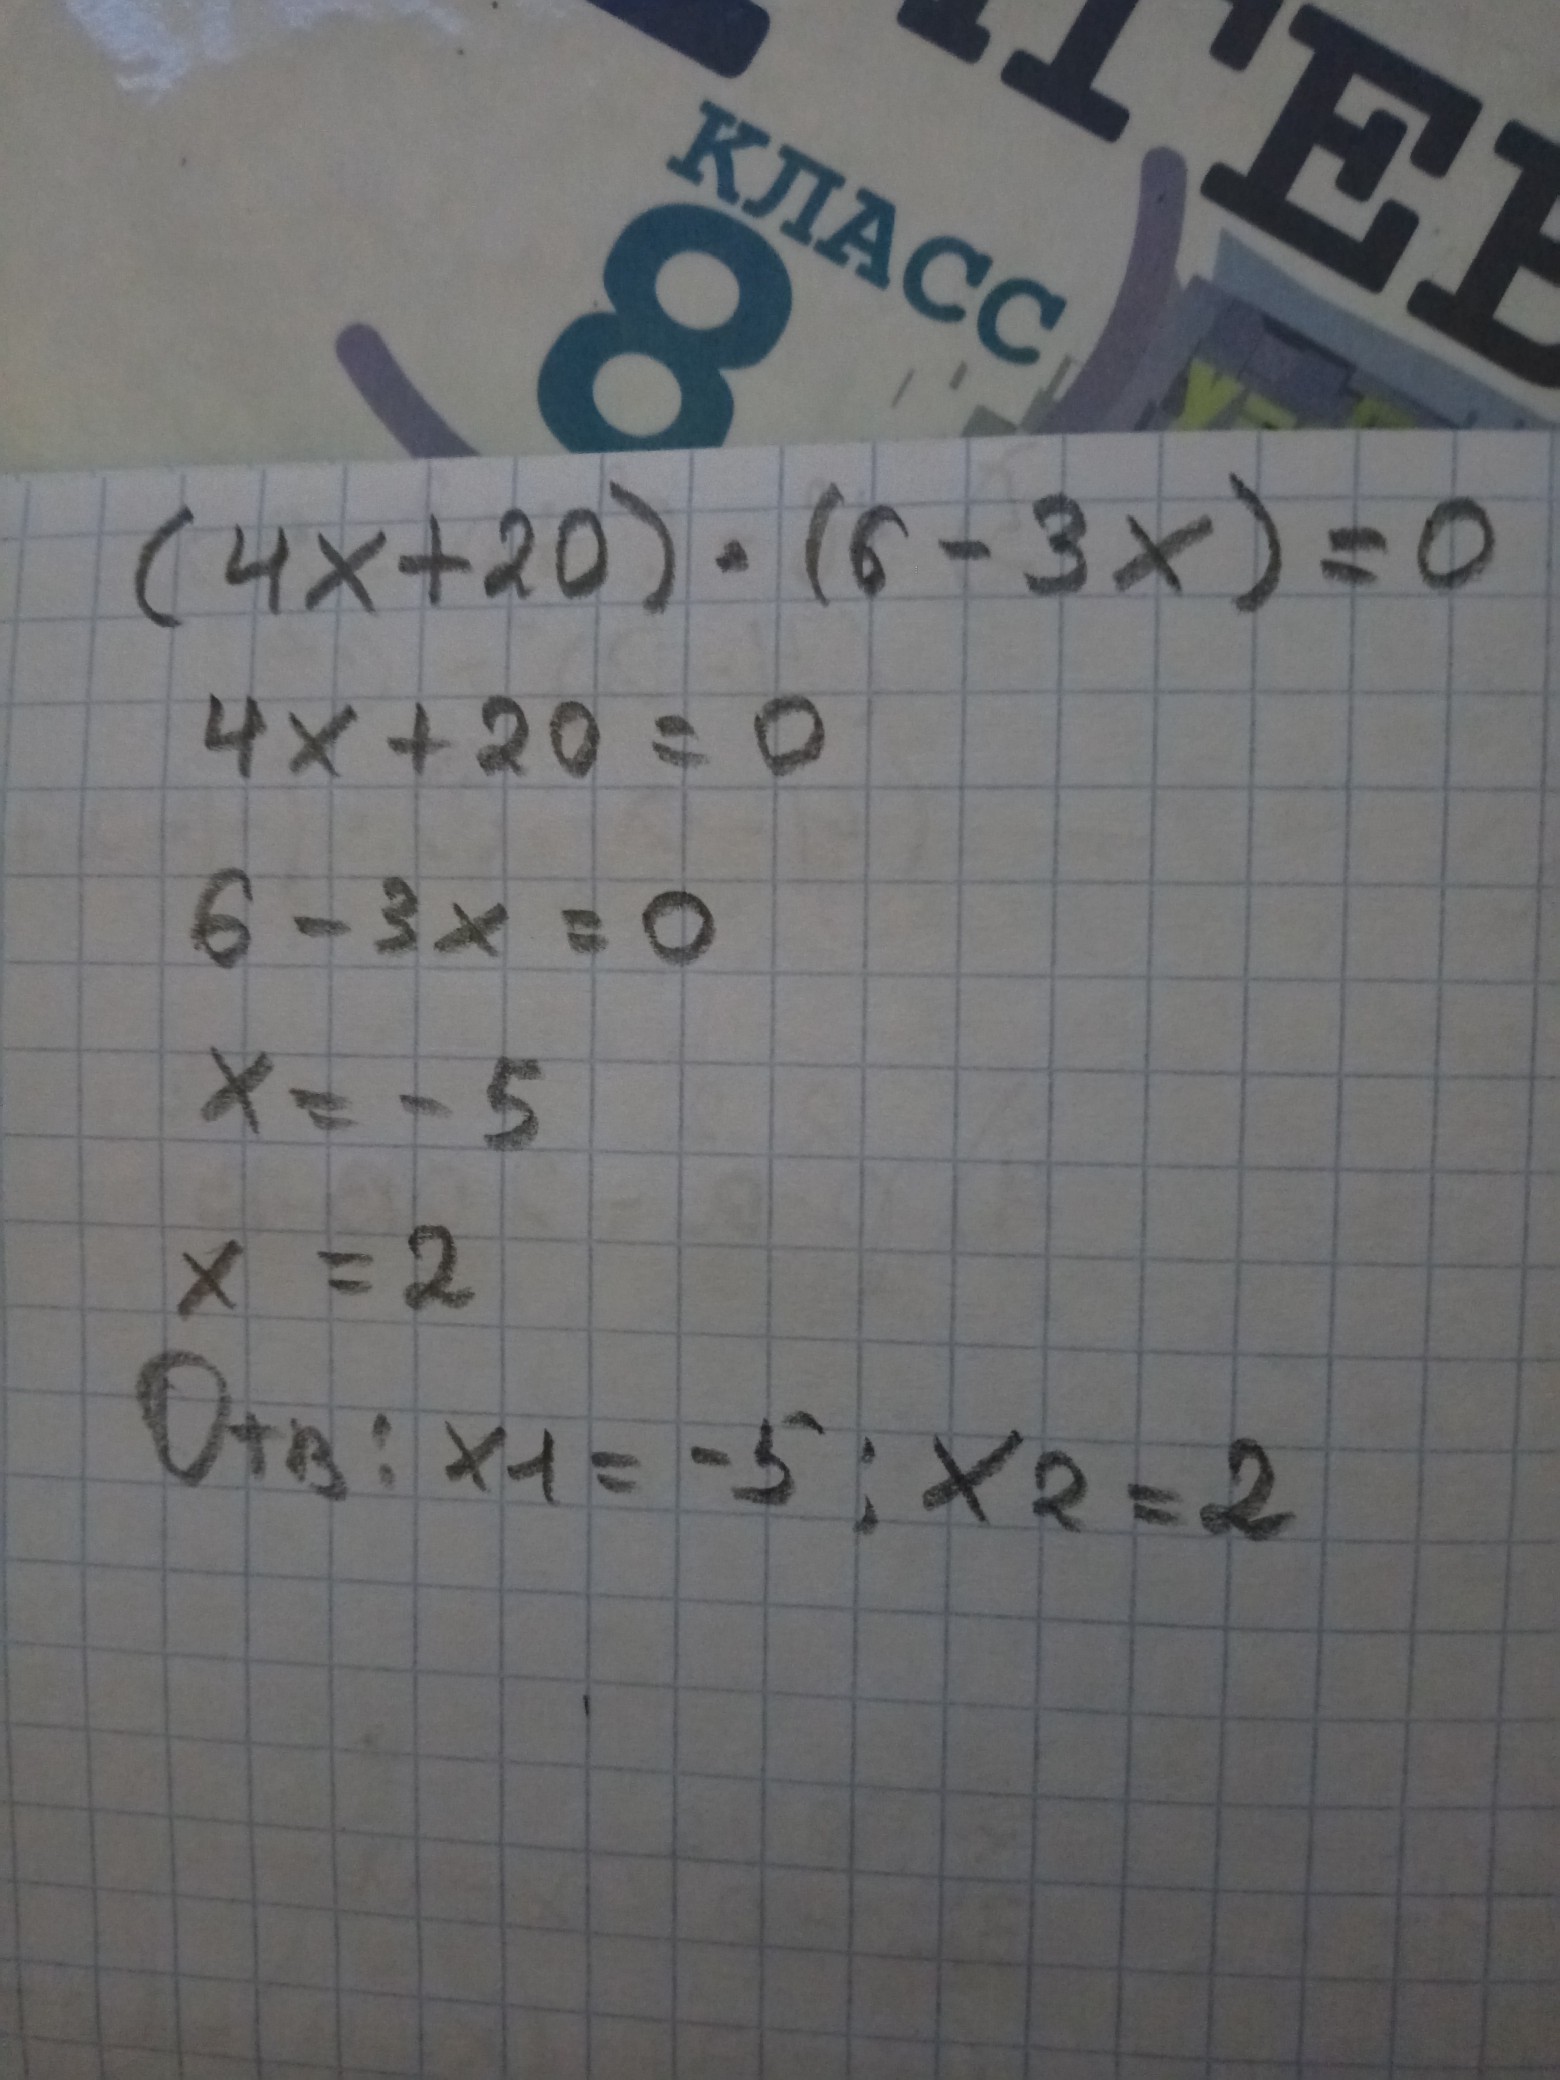 КЛАСС
8
(4x+20)·(6-3x)=0
4x+20=0
6-3x=0
x=-5
x=2
Отв: x1=-5; x2=2